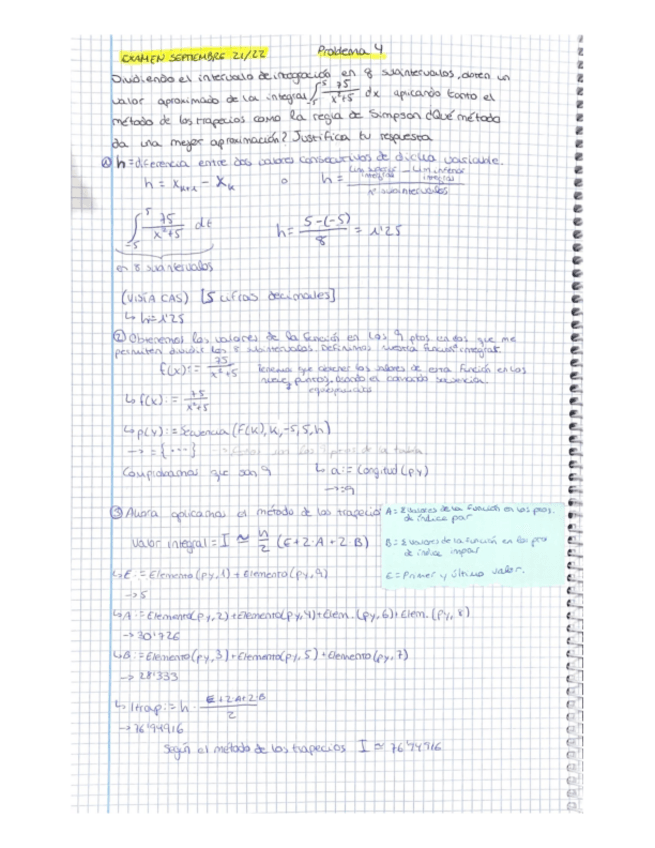 EXAMEN SEPTIEMBRE 21/22 Problema 4
Dividiendo el intervalo de integración en 8 subintervalos, obtén un
valor aproximado de la integral ∫_-5^5 75/(x²+5) dx aplicando tanto el
método de los trapecios como la regla de Simpson ¿Qué método
da una mejor aproximación? Justifica tu respuesta
① h = diferencia entre dos valores consecutivos de dicha variable.
h = x_k+1 - x_k o h = (Lim superior integral - Lim inferior integral)/(nº subintervalos)
∫_-5^5 75/(x²+5) dt h = (5-(-5))/8 = 1'25
en 8 subintervalos
(VISTA CAS) [5 cifras decimales]
↳ h=1'25
② Obtenemos los valores de la función en los 9 ptos que me
permiten dividir los 8 subintervalos. Definimos nuestra función integral.
f(x):= 75/(x²+5) Tenemos que obtener los valores de esta función en los
nueve puntos, usando el comando secuencia.
equiespaciados
↳ f(x):= 75/(x²+5)
↳ p(y):= Secuencia (F(K), K, -5, 5, h)
→ = {...}
Comprobamos que son 9 ↳ a:= Longitud (py)
→ 9
③ Ahora aplicamos el método de los trapecios
Valor integral = I ≃ h/2 (E+2·A+2·B)
A = Σ valores de la función en los ptos.
de índice par
B = Σ valores de la función en los ptos
de índice impar
E = Primer y último valor.
↳ E:= Elemento(py,1) + Elemento(py,9)
→ 5
↳ A:= Elemento(py,2)+Elemento(py,4)+Elem.(py,6)+Elem.(py,8)
→ 30'726
↳ B:= Elemento(py,3)+Elemento(py,5)+Elemento(py,7)
→ 28'333
↳ Itrap:= h · (E+2·A+2·B)/2
→ 76'94916
Según el método de los trapecios I ≃ 76'94916